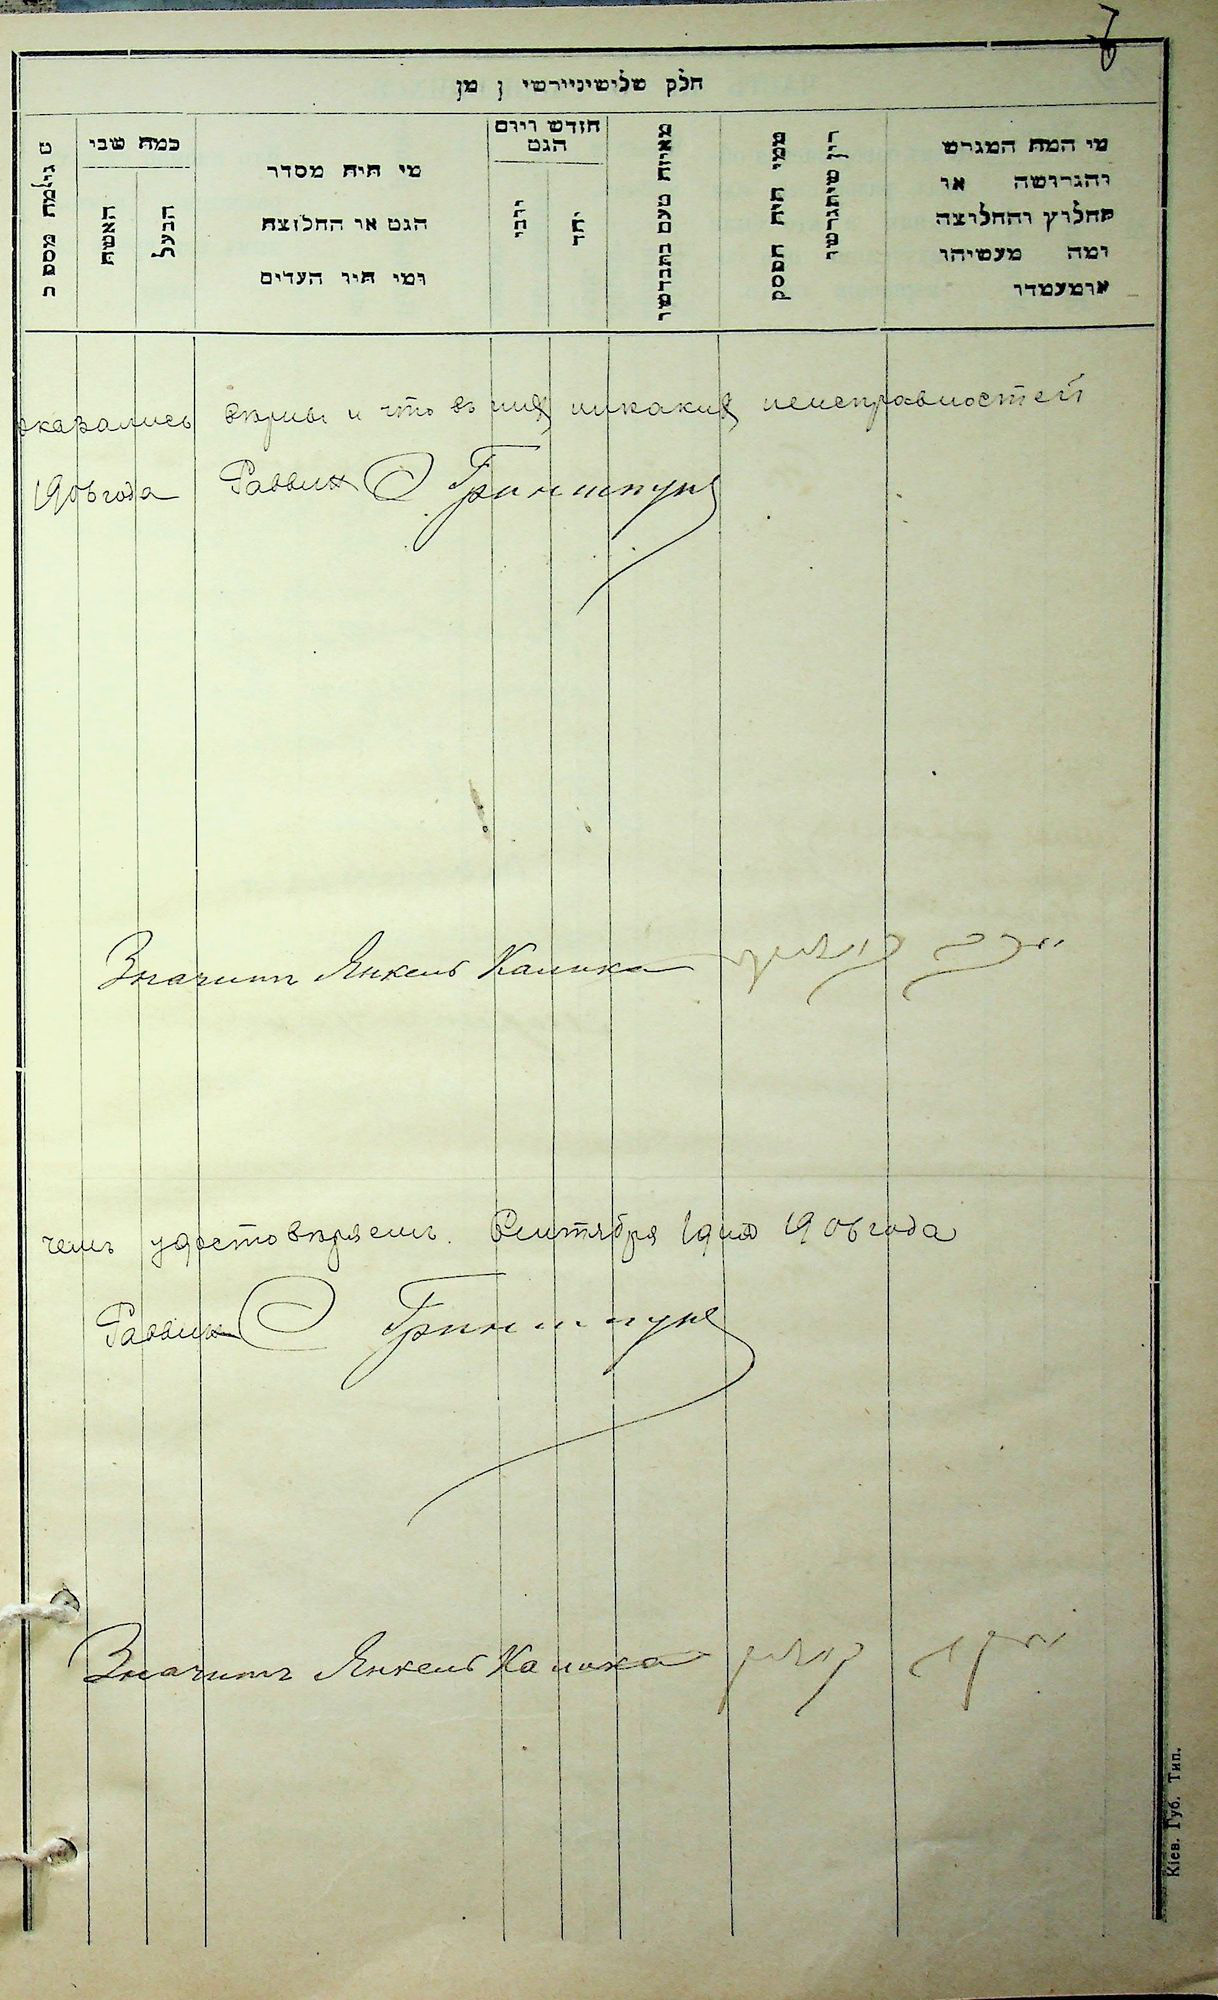 חלק שלישי
מי המה המגרש
והגרושה או
החלוץ והחלוצה
ומה מעשיהו
אומעמדו
ממי היה הפסק
דין שיתגרשו
מאיזה טעם נתגרשו
חודש ויום
הגט
יהד
ירבי
מי היה מסדר
הגט או החלוצה
ומי היו העדים
כמה שבי
הבעל
האשה
оказались вѣрны и что въ нихъ никакихъ неисправностей
1906 года Раввинъ Гриншпунъ
Значитъ Янкель Калика
чемъ удостовѣряемъ. Сентября 1 дня 1906 года
Раввинъ Гриншпунъ
Значитъ Янкель Калика
Кіев. Губ. Тип.